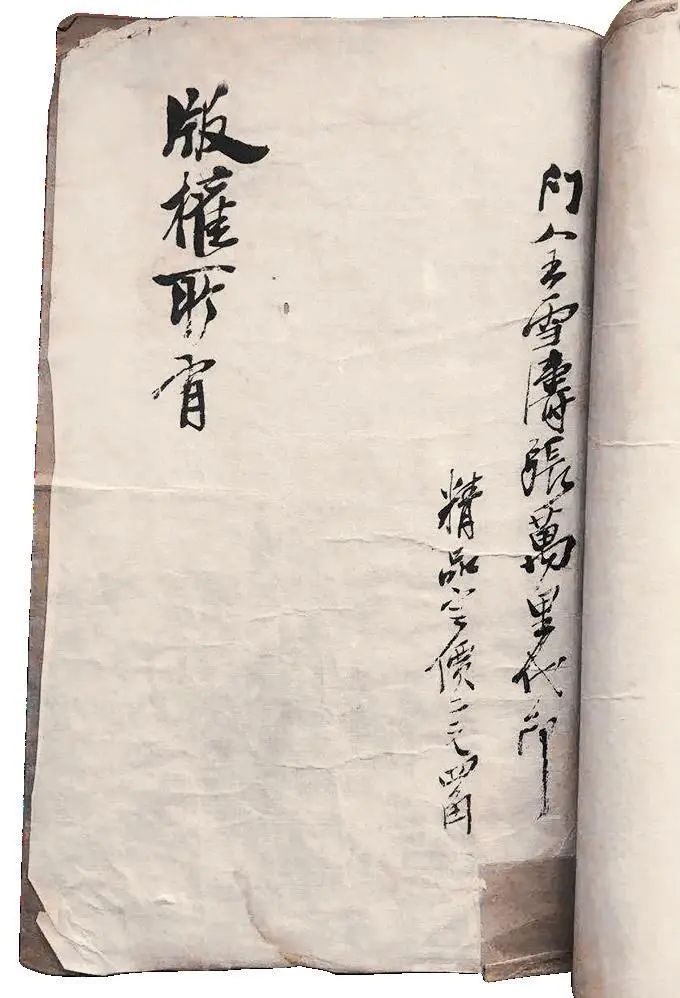 門人王雪濤張萬里代印
精品定價二元四角
版權所有